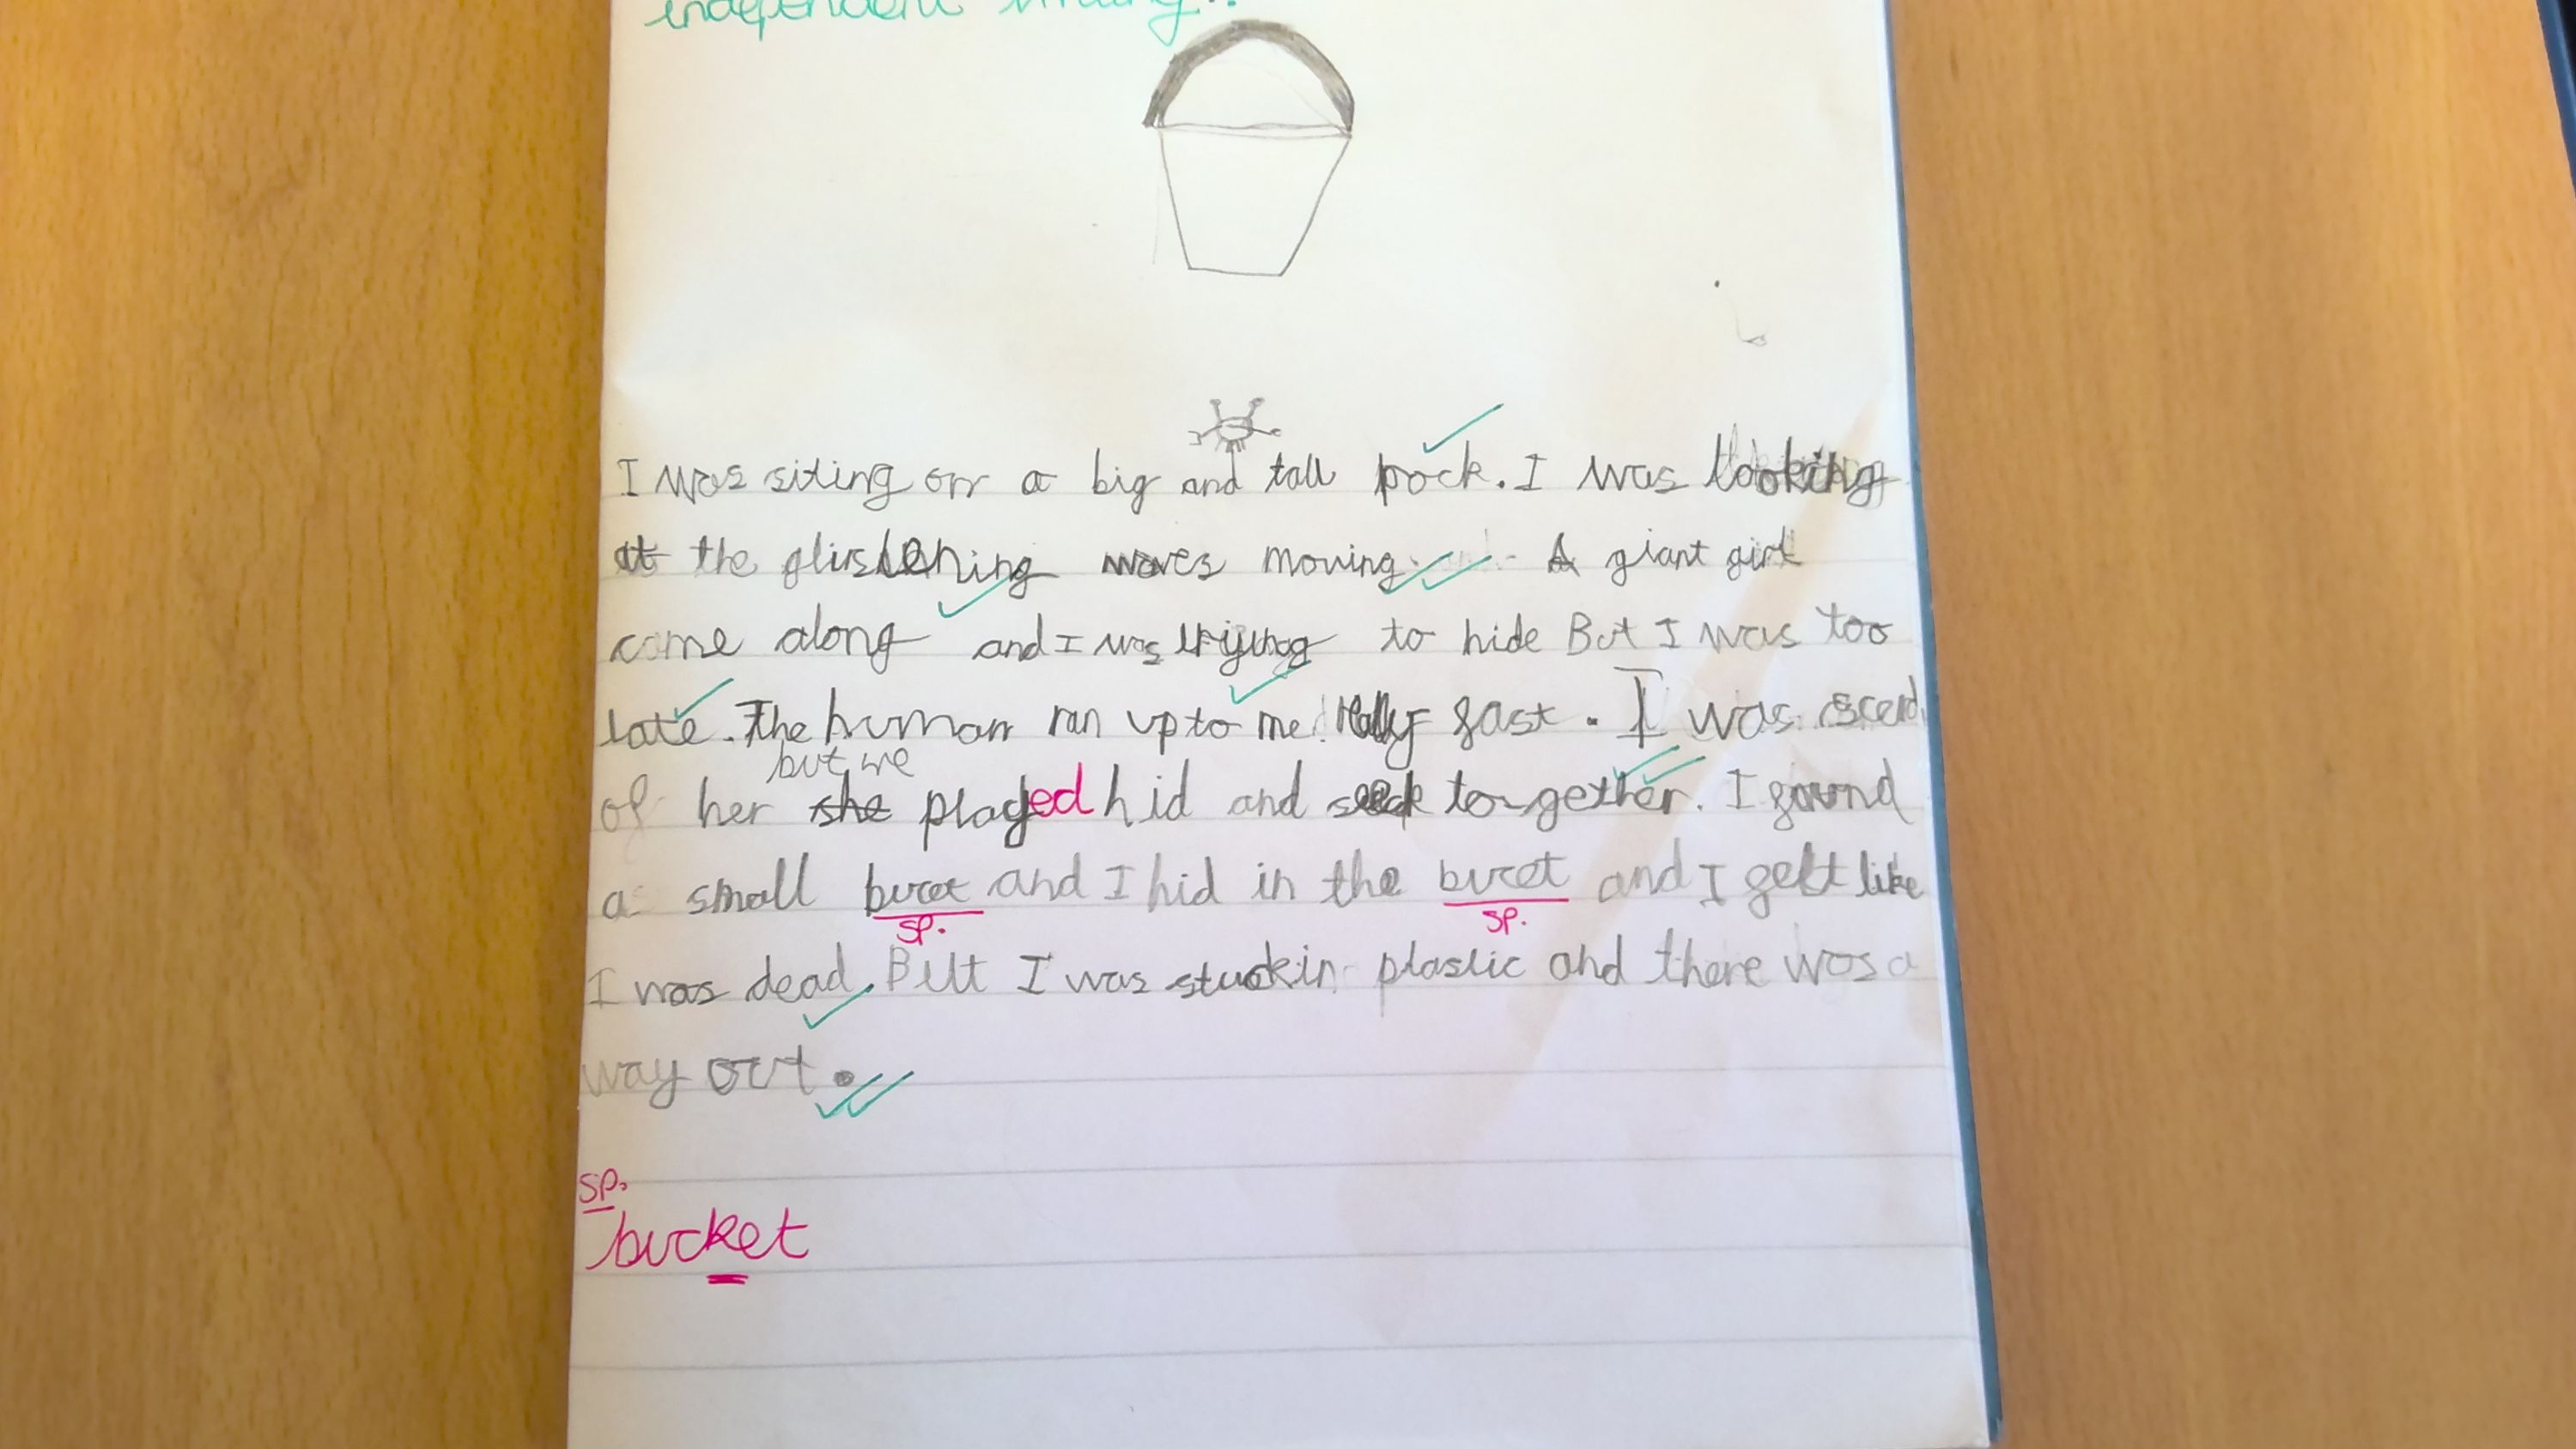 independent writing!!
I was siting on a big and tall rock. I was looking
at the glistening waves moving. A giant girl
came along and I was trying to hide But I was too
late. The human ran up to me really fast. I was scerd
but we
of her she played hid and seek together. I found
a small bucet and I hid in the bucet and I felt like
sp. sp.
I was dead. But I was stuck in plastic and there was a
way out.
sp.
bucket